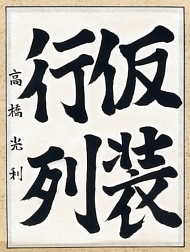 仮装
行列
高橋光利